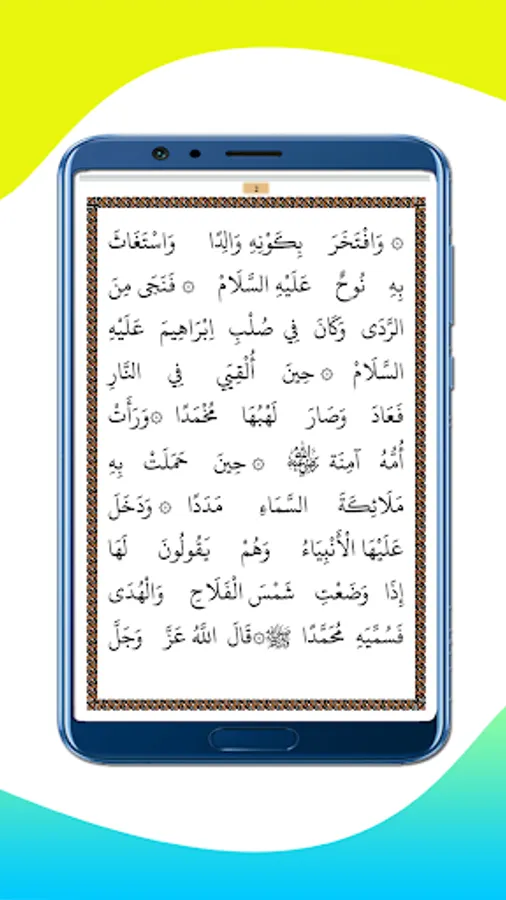 2
۞ وَافْتَخَرَ بِكَوْنِهِ وَالِدًا وَاسْتَغَاثَ
بِهِ نُوحٌ عَلَيْهِ السَّلَامْ ۞ فَنَجَى مِنَ
الرَّدَى وَكَانَ فِي صُلْبِ اِبْرَاهِيمَ عَلَيْهِ
السَّلَامْ ۞ حِينَ أُلْقِيَ فِي النَّارِ
فَعَادَ وَصَارَ لَهْبُهَا مُخْمَدًا ۞ وَرَأَتْ
أُمُّهُ آمِنَة ۞ حِينَ حَمَلَتْ بِهِ
مَلَائِكَةَ السَّمَاءِ مَدَدًا ۞ وَدَخَلَ
عَلَيْهَا الْأَنْبِيَاءُ وَهُمْ يَقُولُونَ لَهَا
إِذَا وَضَعْتِ شَمْسَ الْفَلَاحِ وَالْهُدَى
فَسُمِّيَهِ مُحَمَّدًا ﷺ ۞ قَالَ اللَّهُ عَزَّ وَجَلَّ